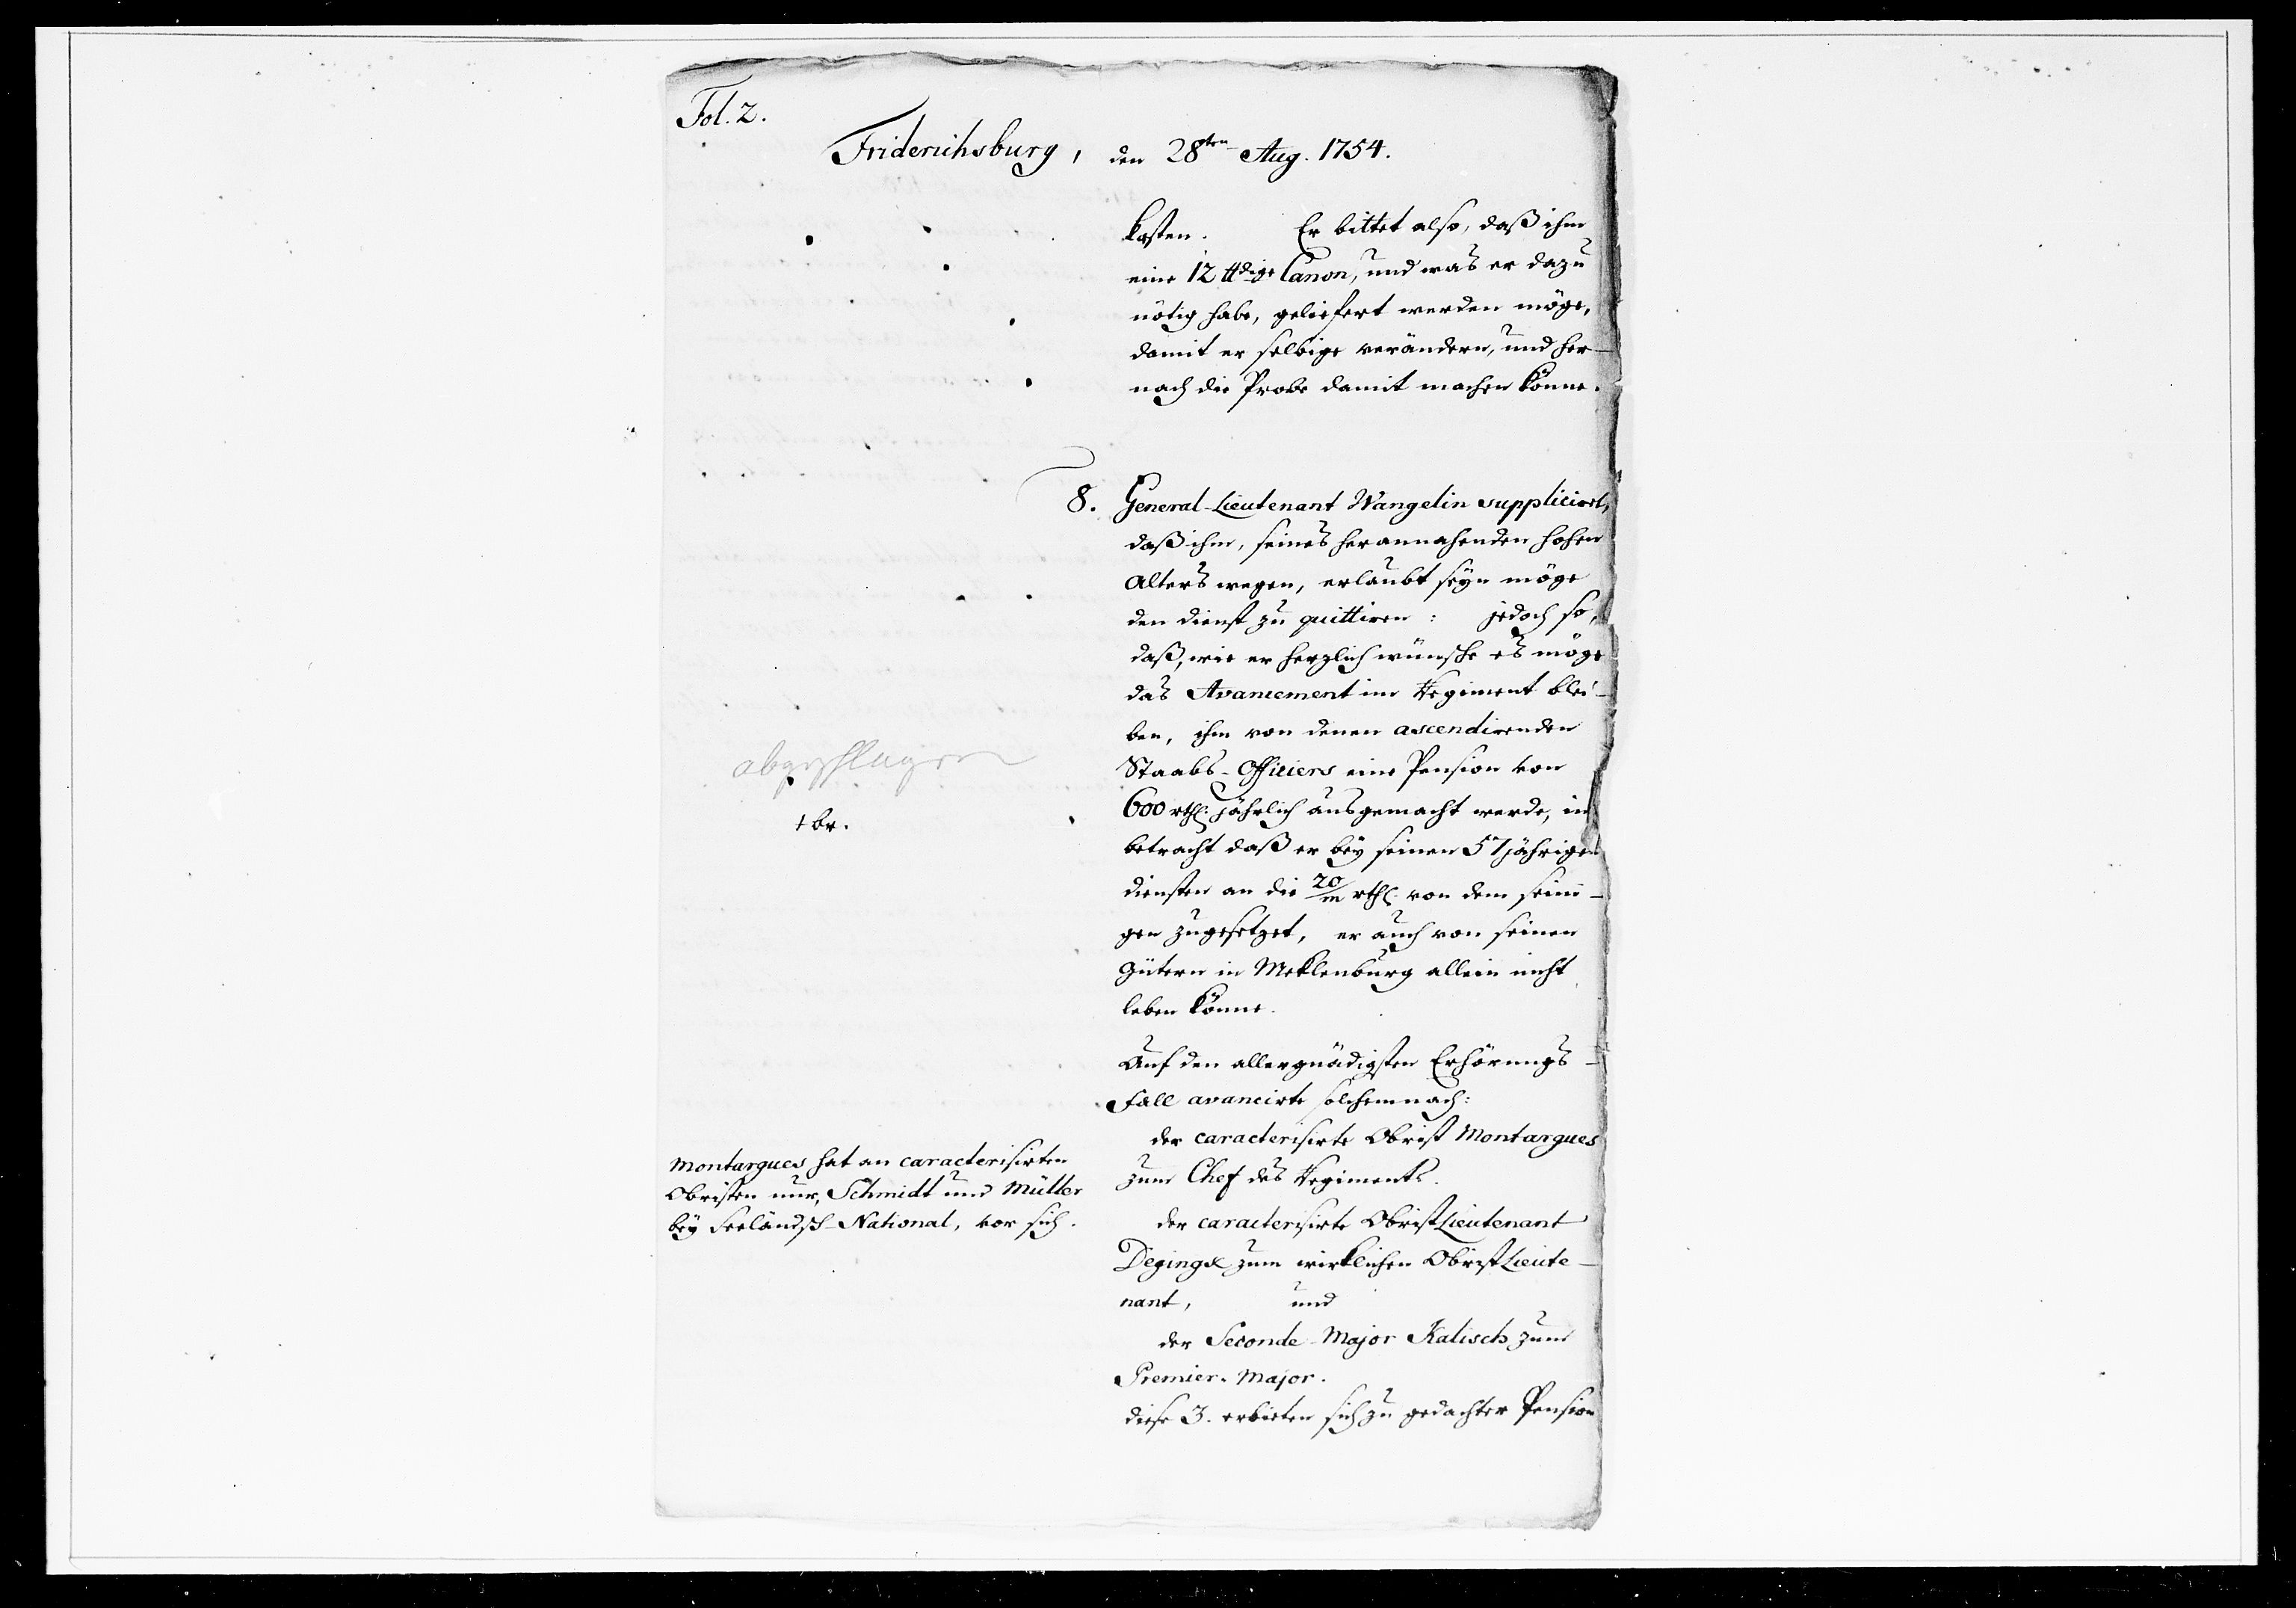 Fol. 2.
Friderichsburg, den 28ten Aug. 1754.
kosten. Er bittet also, daß ihm
eine 12 ttdige Canon, und was er dazu
nötig habe, geliefert werden möge,
damit er selbige verändern, und her-
nach die Probe damit machen könne.
8. General-Lieutenant Wangelin suppliciret,
daß ihm, seines herannahenden hohen
Alters wegen, erlaubt seyn möge
den dienst zu quittiren: jedoch so,
daß, wie er herzlich wünsche es möge
das Avancement im Regiment blei-
ben, ihm von denen ascendirenden
Staabs-Officiers eine Pension von
600 rthl. jährlich ausgemacht werde, in
betracht daß er bey seinen 57jährigen
diensten an die 20/m rthl. von dem seini-
gen zugesetzet, er auch von seinen
Gütern in Meklenburg allein nicht
leben könne.
abgeschlagen
br.
Auf den allergnädigsten Erhörungs-
Fall avancirte solchemnach:
der caracterisirte Obrist Montargues
zum Chef des Regiments.
der caracterisirte ObristLieutenant
Deginge zum wirklichen ObristLieute-
nant, und
der Seconde-Major Kalisch zum
Premier-Major.
diese 3. erbieten sich zu gedachter Pension
Montargues hat an caracterisirten
Obristen nur, Schmidt und Müller
bey Seeländsch-National, vor sich.